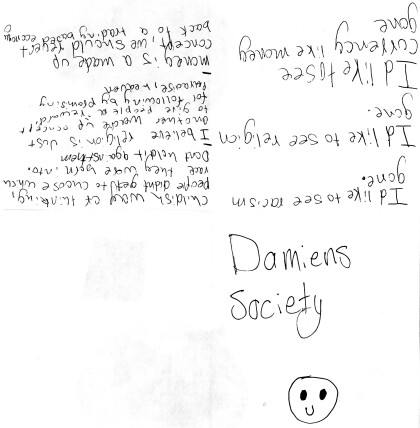 Damiens
Society
I'd like to see racism
gone.
I'd like to see religion
gone.
I'd like to see
currency like money
gone
Childish way of thinking,
people didnt get to choose which
race they were born into.
Dont hold it against them
I believe religion is just
another made up concept
to give people a reward
for following by promising
Paradise,
money is a made up
concept, we should revert
back to a trading based economy